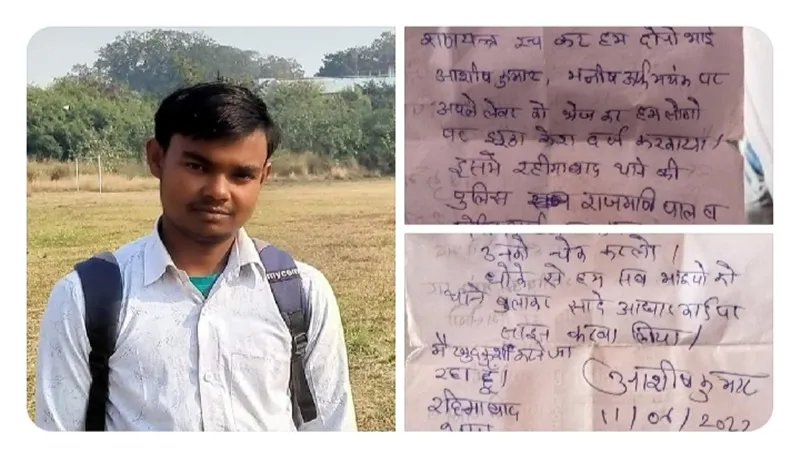 mycom
षणयन्त्र रच कर हम दोनो भाई
आशीष कुमार, मनीष उर्फ मयंक पर
अपने लेबर को भेज कर हम लोगो
पर झूठा केस दर्ज करवाया।
इसमे रहीमाबाद थाने की
पुलिस राजमणि पाल व
उनको चेक करलो।
धोके से हम सब भाइयो को
थाने बुलाकर सादे आधार कार्ड पर
साइन करवा लिया।
मै खुदकुशी करने जा
रहा हूँ।
रहिमाबाद
थाना
आशीष कुमार
11/06/2022